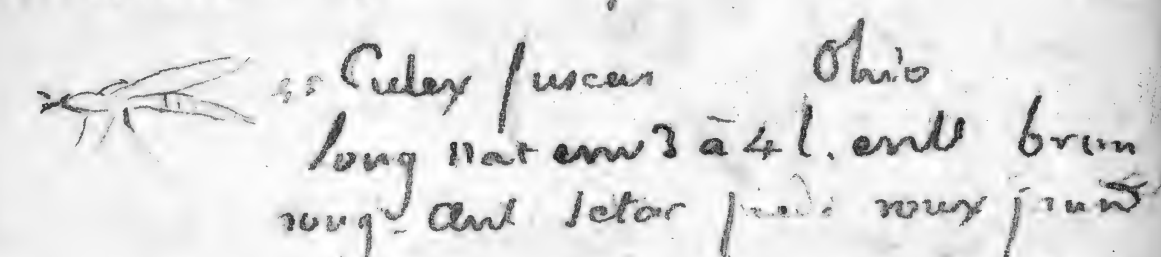 Culex fuscus Ohio
long nat env 3 à 4 l. ent brun
roug. ant setac pieds roux jaun